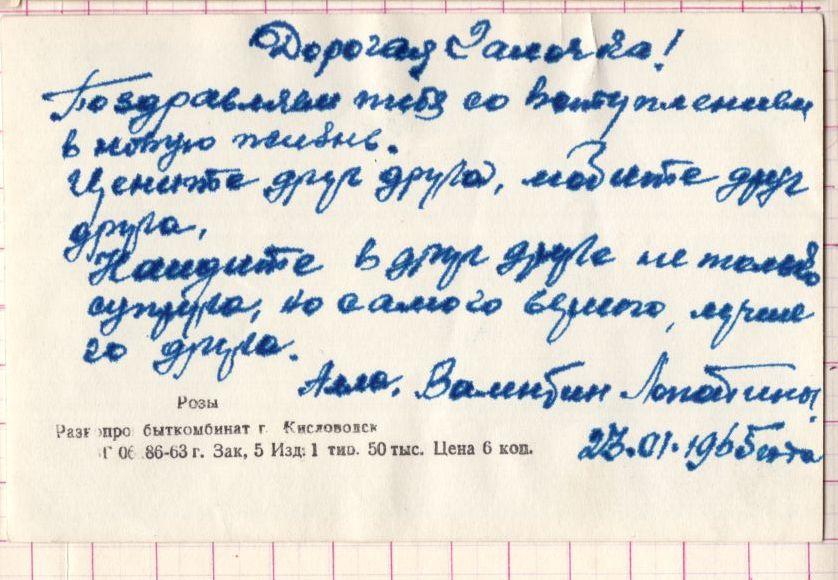 Дорогая Галочка!
Поздравляем тебя со вступлением
в новую жизнь.
Цените друг друга, любите друг
друга,
Найдите в друг друге не только
супруга, но самого верного, лучше
го друга.
Алла, Валентин Лопатины
23.01.1965 года
Розы
быткомбинат г. Кисловодск
86-63 г. Зак. 5 Изд. 1 тир. 50 тыс. Цена 6 коп.